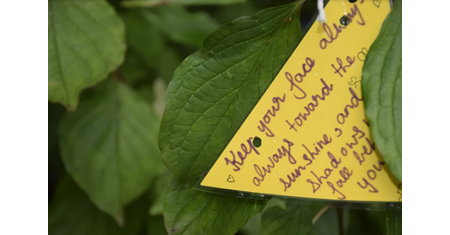 Keep your face always
always toward the
sunshine, and
Shadows
fall be
you